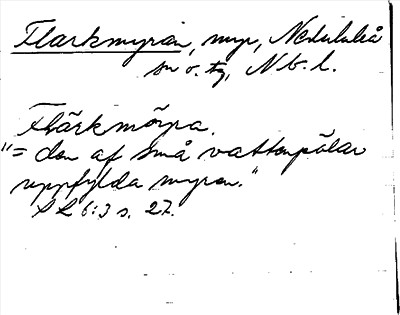 Flarkmyran, myr, Nederluleå
sn o. tg, N.b.l.
Flärkmörpa.
"= den af små vattenpölar
uppfylda myren."
SL 6:3 s. 27.